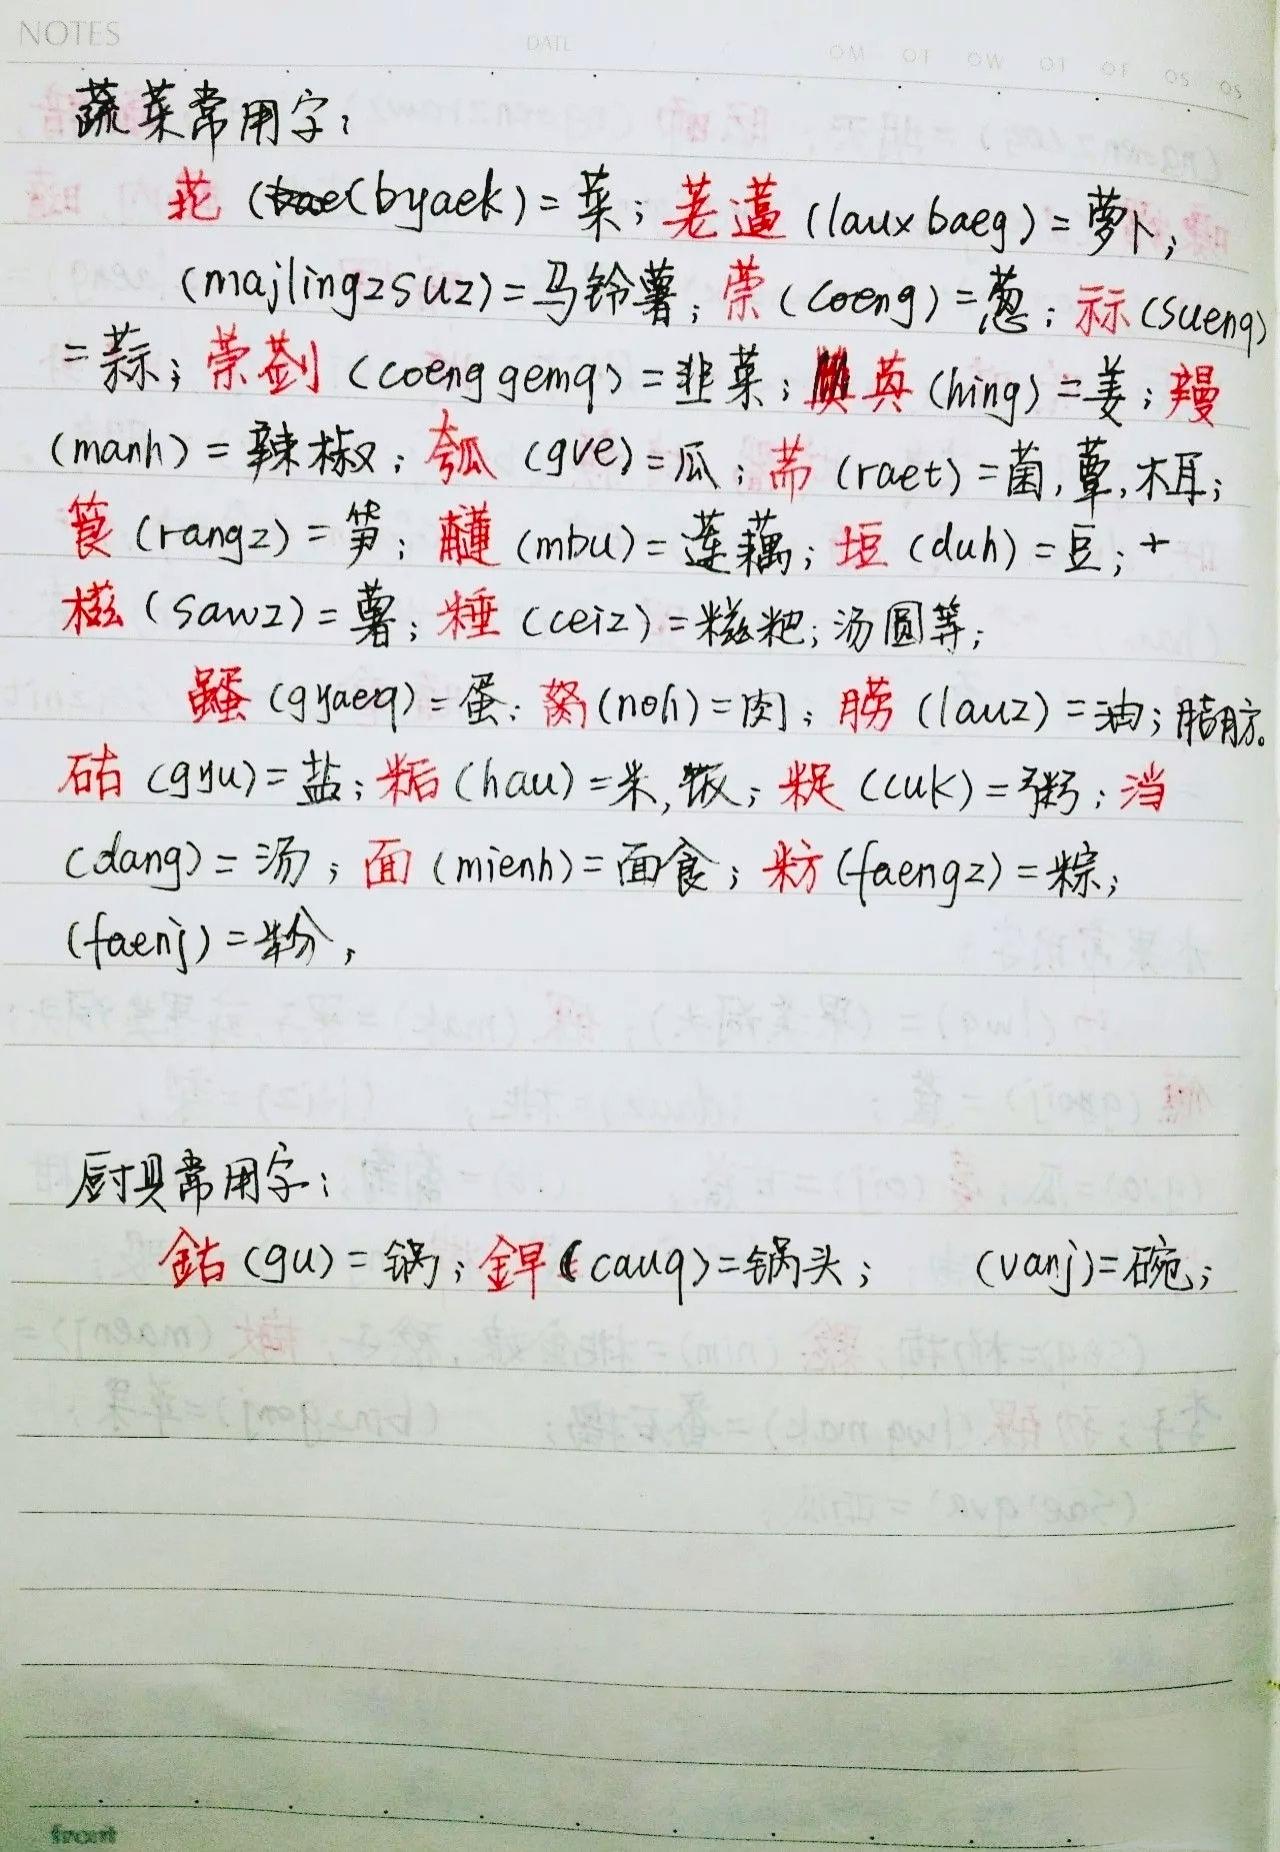 NOTES
DATE
蔬菜常用字:
(byaek)=菜; 荖𮞁(laux baeg)=萝卜;
(majlingzsuz)=马铃薯; 䓝(coeng)=葱; 祘(sueng)
=蒜; (coenggemq)=韭菜; 英(hing)=姜;
(manh)=辣椒; (gve)=瓜; (raet)=菌,蕈,木耳;
(rangz)=笋; (mbu)=莲藕; 垣(duh)=豆;
(sawz)=薯; (ceiz)=糍粑;汤圆等;
(gyaeq)=蛋; (noh)=肉; 𦛨(lauz)=油;脂肪。
(gyu)=盐; 粘(hau)=米,饭; 粯(cuk)=粥;
(dang)=汤; 面(mienh)=面食; (faengz)=粽;
(faenj)=粉,
厨具常用字:
鈷(gu)=锅; 銲(cauq)=锅头; (vanj)=碗;
front